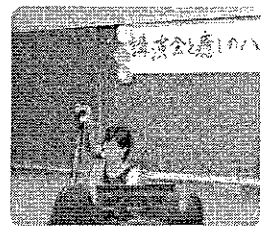 講演会と癒しのハ